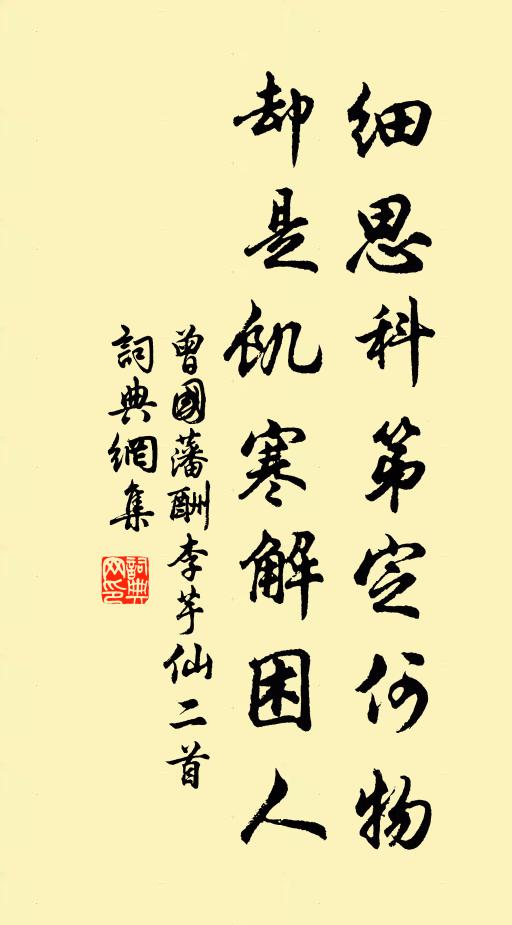 細思科第定何物
却是飢寒解困人
曾國藩酬李芋仙二首
詞典網集
詞典網印